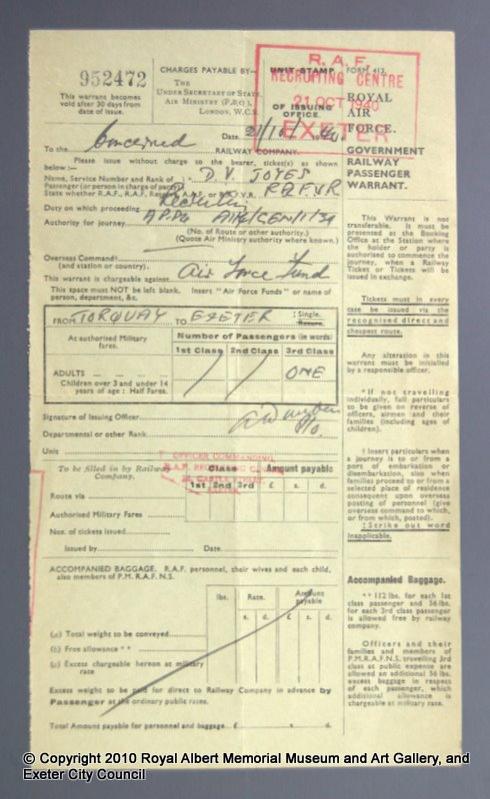 952472
This warrant becomes
void after 30 days from
date of issue.
CHARGES PAYABLE BY—
THE
UNDER SECRETARY OF STATE,
AIR MINISTRY (F.D.C),
LONDON, W.C.2
UNIT STAMP
OF ISSUING
OFFICE.
R.A.F.
RECRUITING CENTRE
21 OCT 1940
EXETER
FORM 413.
ROYAL
AIR
FORCE.
GOVERNMENT
RAILWAY
PASSENGER
WARRANT.
Date 21/10/40
To the Concerned RAILWAY COMPANY.
Please issue without charge to the bearer, ticket(s) as shown
below :—
Name, Service Number and Rank of
Passenger (or person in charge of party)
D.V. JOYES
State whether R.A.F., R.A.F. or R.A.F.V.R. RAFVR
Duty on which proceeding Recruiting
Authority for journey
(No. of Route or other authority.)
(Quote Air Ministry authority where known.)
Overseas Command
(and station or country).
This warrant is chargeable against Air Force Fund
This space must NOT be left blank. Insert "Air Force Funds" or name of
person, department, &c.
FROM TORQUAY TO EXETER
‡ Single.
Return.
At authorised Military
fares.
Number of Passengers (in words)
1st Class 2nd Class 3rd Class
ADULTS ONE
Children over 3 and under 14
years of age : Half Fares.
Signature of Issuing Officer
Departmental or other Rank P/O.
Unit
OFFICER COMMANDING
R.A.F. RECRUITING CENTRE
To be filled in by Railway
Company.
Class
1st 2nd 3rd
Amount payable
£ s. d.
£ s. d.
Route via
Authorised Military Fares
Nos. of tickets issued
Issued by Date
ACCOMPANIED BAGGAGE. R.A.F. personnel, their wives and each child,
also members of P.M.R.A.F.N.S.
lbs. Rate. Amount
payable
s. d. £ s. d.
(a) Total weight to be conveyed
(b) Free allowance **
(c) Excess chargeable hereon at military
rate
Excess weight to be paid for direct to Railway Company in advance by
Passenger at the ordinary public rates.
Total Amount payable for personnel and baggage £ s. d.
This Warrant is not
transferable. It must be
presented at the Booking
Office at the Station where
the holder or party is
authorised to commence the
journey, when a Railway
Ticket or Tickets will be
issued in exchange.
Tickets must in every
case be issued via the
recognised direct and
cheapest route.
Any alteration in this
warrant must be initialled
by a responsible officer.
* If not travelling
individually, full particulars
to be given on reverse of
officers, airmen and their
families (including ages of
children).
† Insert particulars when
a journey is to or from a
port of embarkation or
disembarkation, also when
families proceed to or from a
selected place of residence
consequent upon overseas
posting of personnel (give
overseas command to which,
or from which, posted).
‡ Strike out word
inapplicable.
Accompanied Baggage.
** 112 lbs. for each 1st
class passenger and 56 lbs.
for each 3rd class passenger
is allowed free by railway
company.
Officers and their
families and members of
P.M.R.A.F.N.S. travelling 3rd
class at public expense are
allowed an additional 56 lbs.
excess baggage in respect
of each passenger, which
additional allowance is
chargeable at military rate.
© Copyright 2010 Royal Albert Memorial Museum and Art Gallery, and
Exeter City Council